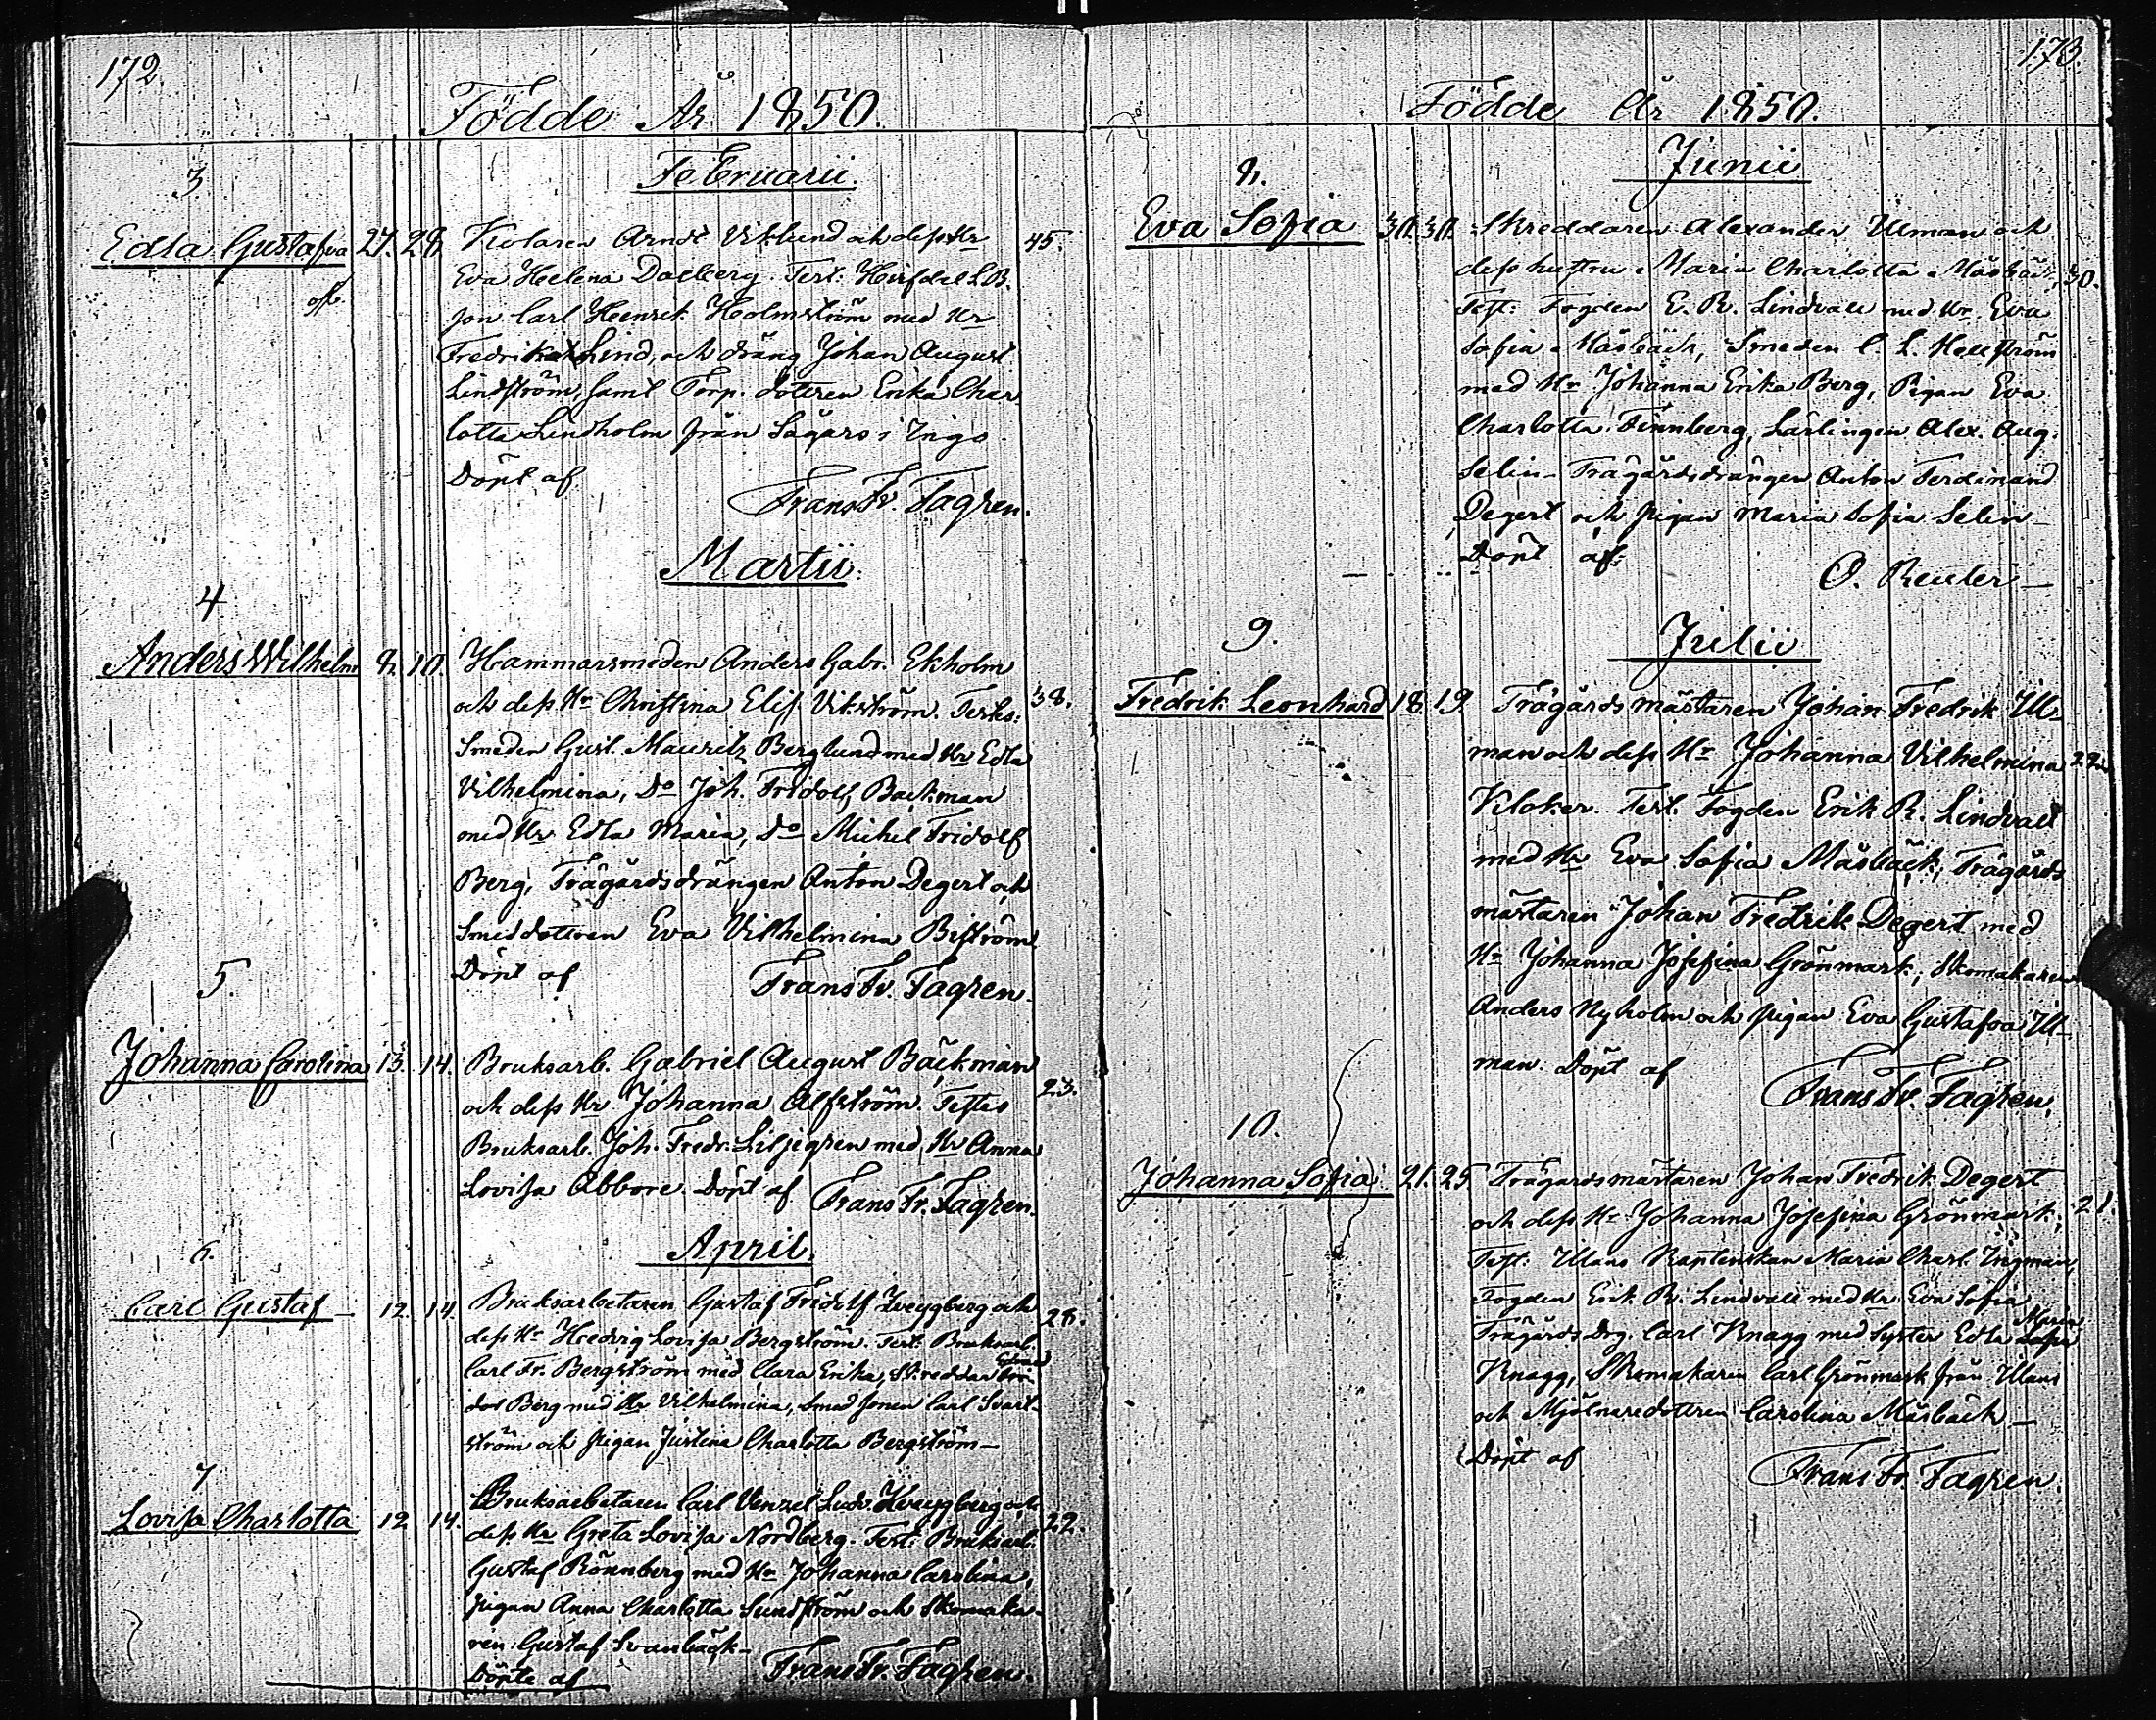 172.
Födde År 1850.
Februarii.
3
Edla Gustafva 27. 28. Kolaren Arndt Viklund och dess Hr 45.
Eva Helena Dalberg. Test:
son Carl Henrik Holmström med Hr
Fredrika Lind, och dräng Johan August
Lindström, samt Torp. dottren Erika Char
lotta Lindholm från Sågars i Ingo.
Döpt af
Frans Fr. Fagren.
Martii.
4
Anders Wilhelm 8. 10. Hammarsmeden Anders Gabr. Ekholm
och dess Hr Christina Elis. Vikström. Testes: 38.
Smeden Gust. Mauritz Berglund med Hr Edla
Vilhelmina, Do Joh. Fridolf Backman
med Hr Edla Maria, Do Michel Fridolf
Berg, Trägårdsdrängen Anton Degert och
Smeddottren Eva Vilhelmina Biström
Döpt af Frans Fr. Fagren.
5.
Johanna Carolina 13. 14. Bruksarb. Gabriel August Bäckman
och dess Hr Johanna Alfström. Testes 23.
Bruksarb. Joh. Fredr. Liljegren med Hr Anna
Lovisa Abbore. Döpt af Frans Fr. Fagren.
April.
6.
Carl Gustaf 12. 14. Bruksarbetaren Gustaf Fridolf Zweygberg och
dess Hr Hedvig Lovisa Bergström. Test: Bruksarb. 28.
Carl Fr. Bergström med Clara Erika, Skreddar
Berg med Hr Vilhelmina, Smedsonen Carl Svart-
ström och pigan Justina Charlotta Bergström—
7
Lovisa Charlotta 12 14. Bruksarbetaren Carl Venzel Ludv. Zweygberg och
dess Hr Greta Lovisa Nordberg. Test: Bruksarb. 22.
Gustaf Rönnberg med Hr Johanna Carolina,
pigan Anna Charlotta Sundström och Skomaka-
ren Gustaf Svanbäck—
Döpte af Frans Fr. Fagren.
173.
Födde År 1850.
Junii
8.
Eva Sofia 30. 30. Skreddaren Alexander Ulman och
dess hustru Maria Charlotta Måsbäck, 30.
Test: Fogden E. R. Lindvall med Hr. Eva
Sofia Måsbäck, Smeden C. L. Hellström
med Hr Johanna Erika Berg, Pigan Eva
Charlotta Finnberg, Lärlingen Alex. Aug.
Selin— Trägårdsdrängen Anton Ferdinand
Degert och pigan Maria Sofia Selin—
Döpt af:
O. Reuter—
Julii
9.
Fredrik Leonhard 18. 19. Trägårdsmästaren Johan Fredrik Ul-
man och dess Hr Johanna Vilhelmina 22
Kloker. Test. Fogden Erik R. Lindvall
med Hr Eva Sofia Måsbäck, Trägårds
mästaren Johan Fredrik Degert med
Hr Johanna Josefina Grönmark, Skomakaren
Anders Nyholm och pigan Eva Gustafva Ul-
man. Döpt af
Frans Fr. Fagren.
10.
Johanna Sofia 21. 25. Trägårdsmästaren Johan Fredrik Degert
och dess Hr Johanna Josefina Grönmark, 21.
Test: Maria Charl. Ingman,
Fogden Erik R. Lindvall med Hr Eva Sofia
Trägårds Drg. Carl Knagg med Syster Edla Maria
Knagg, Skomakaren Carl Grönmark från
och Mjölnaredottren Carolina Måsbäck—
Döpt af
Frans Fr. Fagren.